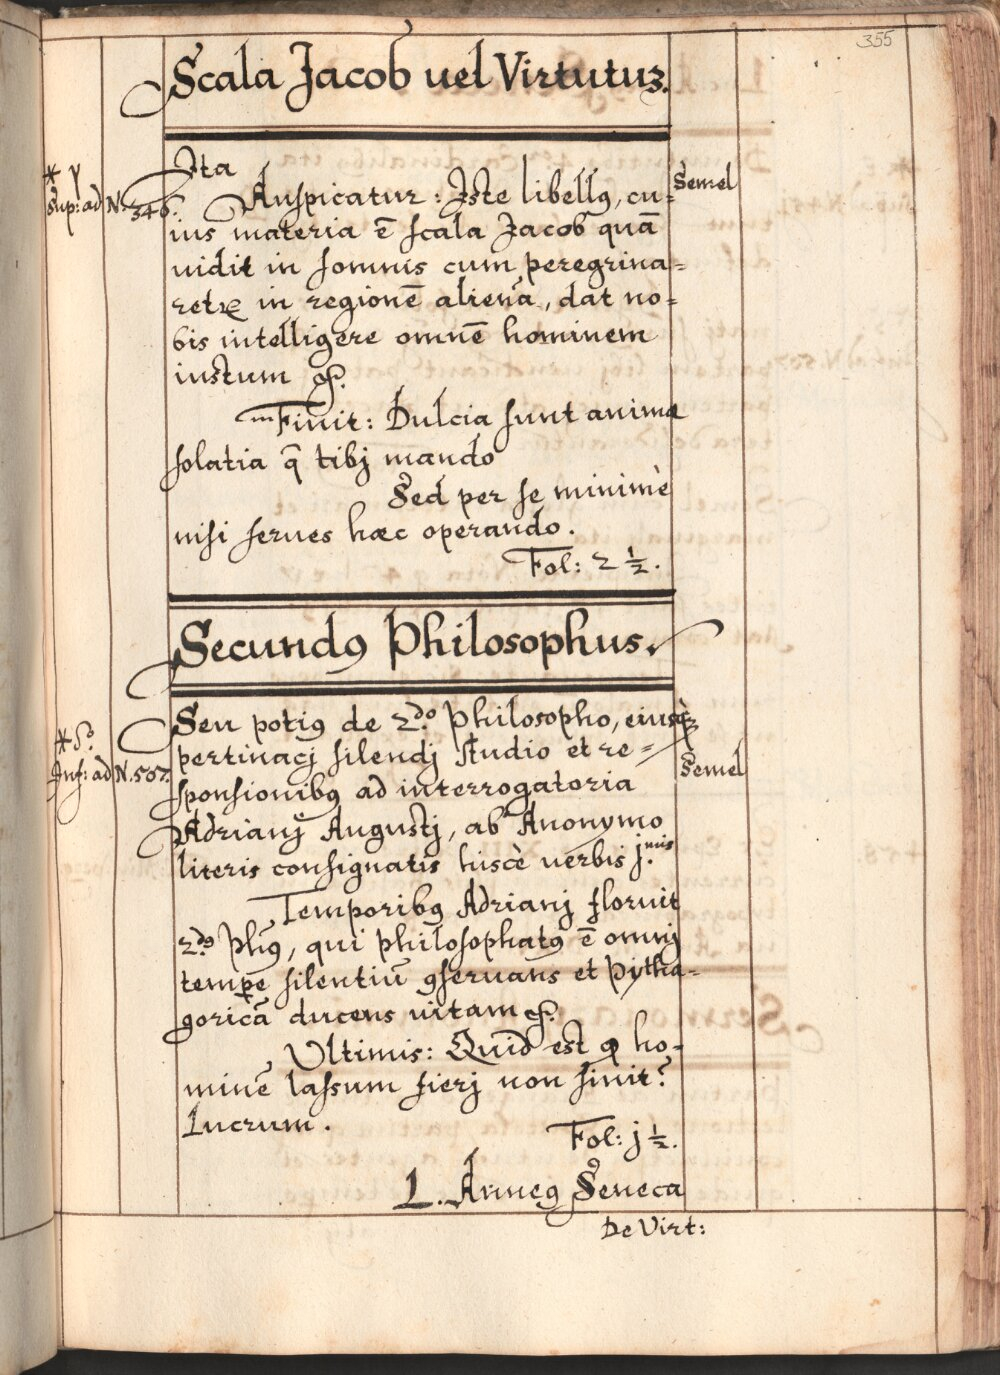 355
Scala Jacob uel Virtutuꝫ.
* γ
Sup: ad N. 346.
Ita
Auspicatur: Iste libellꝯ, cu=
Semel
ius materia ē scala Jacob quā
uidit in somnis cum peregrina=
retꝛ in regionē alienā, dat no=
bis intelligere omnē hominem
iustum &.
Finit: Dulcia sunt animæ
solatia q̄ tibj mando
Sed per se minimè
nisi serues hæc operando.
Fol: 2 ½.
Secundꝯ Philosophus.
* δ.
Inf: ad N. 507.
Seu potiꝯ de 2.do Philosopho, eiusqꝫ
pertinacj silendj studio et re=
Semel
sponsionibꝯ ad interrogatoria
Adrianj Augustj, ab Anonymo
literis consignatis hiscè uerbis j.mis
Temporibꝯ Adrianj floruit
2.dꝯ Phūs, qui philosophatꝯ ē omnj
tempe silentiū ꝯseruans et Pytha-
goricā ducens uitam &.
Ultimis: Quid est ꝙ ho-
minē lassum fierj non sinit?
Lucrum.
Fol: j ½.
L. Anneꝯ Seneca
De Virt: